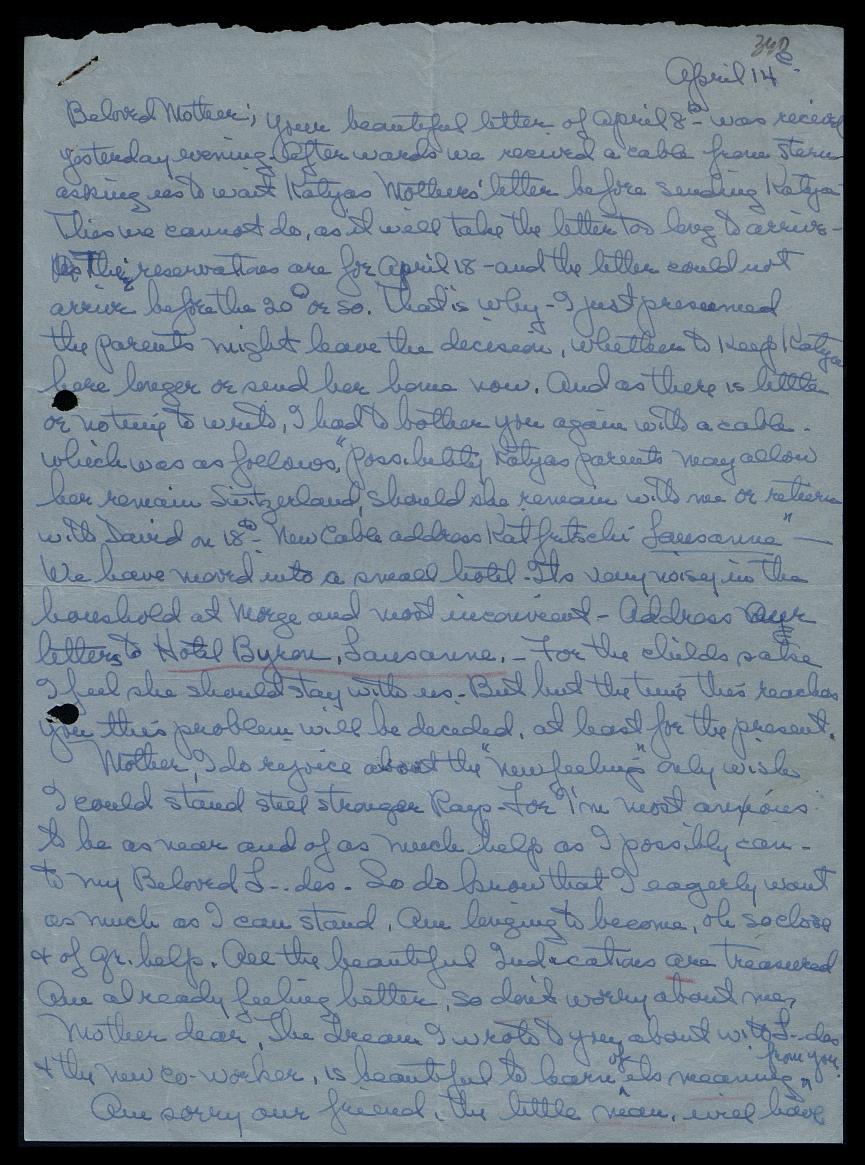 April 14th-
Beloved Mother; your beautiful letter of April 8th- was received
yesterday evening. After wards we received a cable from Stern
asking us to wait Katyas Mothers' letter before sending Katya
This we cannot do, as it will take the letter too long to arrive-
The reservations are for April 18 - and the letter could not
arrive before the 20th or so. That is why - I just presumed
the parents might leave the decision, whether to keep Katya
here longer or send her home now. And as there is little
or nothing to write, I had to bother you again with a cable-
which was as follows, "Possibility Katyas parents may allow
her remain Switzerland, should she remain with me or return
with David on 18th- New Cable address Katfritschi Lausanne" —
We have moved into a small hotel. Its very noisy in the
household at Morge and most inconvient - Address our
letters to Hotel Byron, Lausanne. - For the childs sake
I feel she should stay with us. But but the time this reaches
you this problem will be decided, at least for the present.
Mother, I do rejoice about the "new feeling" only wish
I could stand steel stronger Rays - For I'm most anxious
to be as near and of as much help as I possibly can -
to my Beloved L-. des. So do know that I eagerly want
as much as I can stand. Am longing to become, oh so close
+ of gr. help. All the beautiful Indications are treasured
Am already feeling better, so don't worry about me,
Mother dear, The Dream I wrote to you about with L-. des
+ the new co-worker, is beautiful to learn of its meaning from you.
Am sorry our friend, the little man, will have